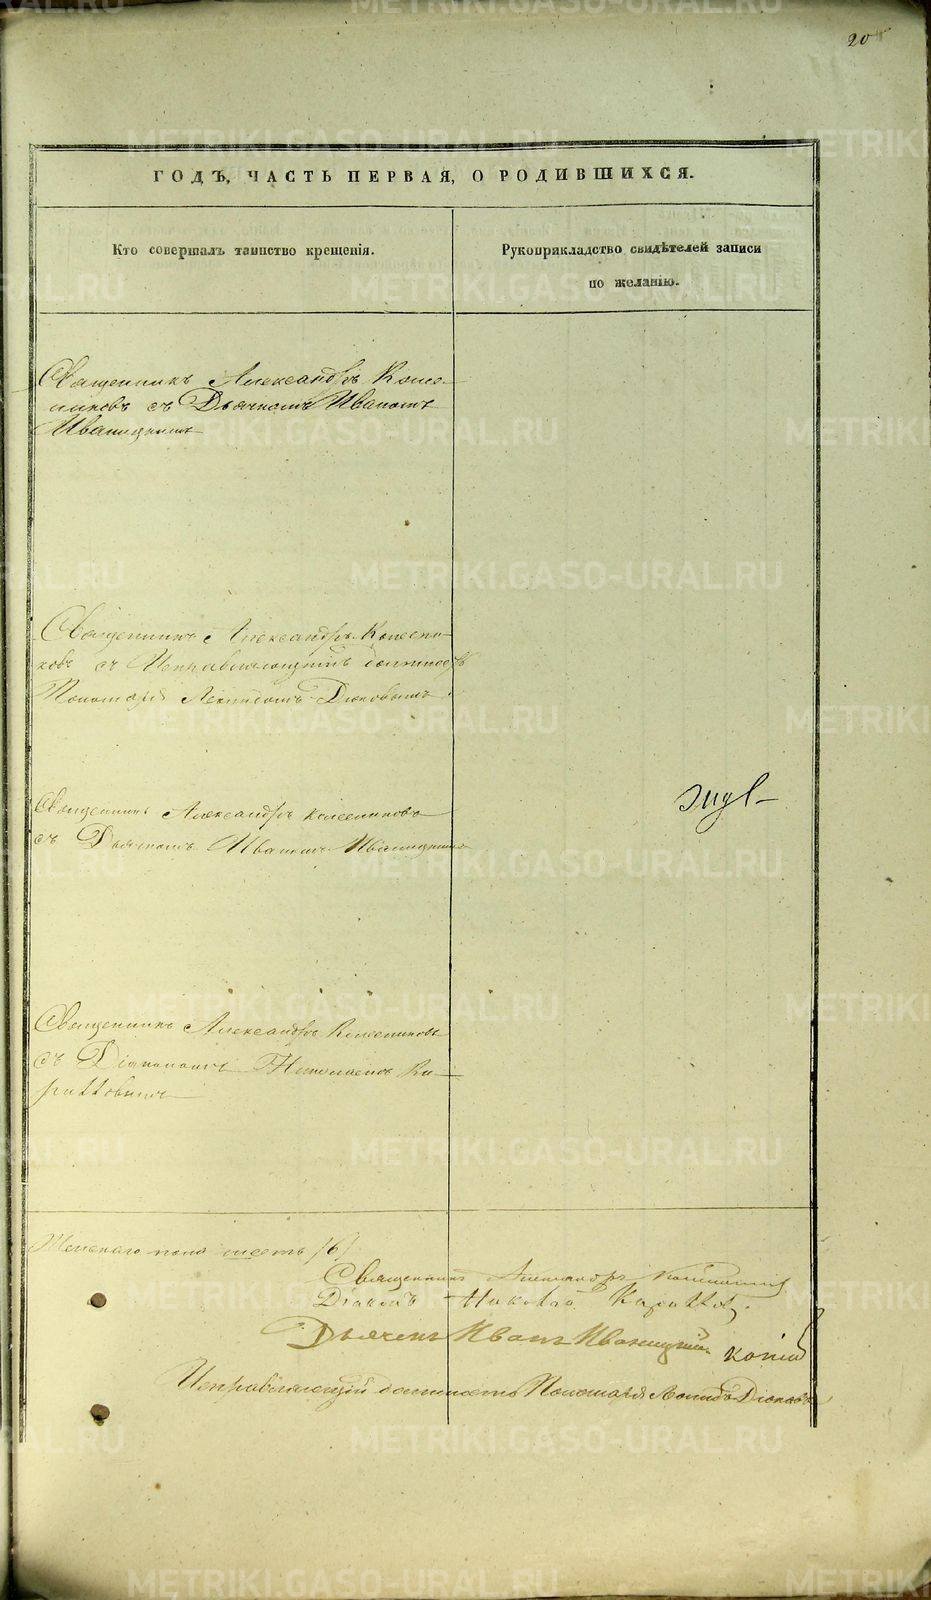 20
ГОДЪ, ЧАСТЬ ПЕРВАЯ, О РОДИВШИХСЯ.
Кто совершалъ таинство крещенія.
Рукоприкладство свидѣтелей записи
по желанію.
Священникъ Александръ Колес-
никовъ съ Дьячкомъ Иваномъ
Иваницкимъ
Священникъ Александръ Колесни-
ковъ съ Исправляющимъ должность
Пономаря Леонидомъ Дюковымъ
Священникъ Александръ Колесниковъ
съ Дьячкомъ Иваномъ Иваницкимъ
Священникъ Александръ Колесниковъ
съ Діакономъ Николаемъ Ка-
риттовымъ
Женскаго пола шесть /6/
Священникъ Александръ Колесниковъ
Діаконъ Николай Кариттовъ.
Дьячекъ Иванъ Иваницкій
Исправляющій должность Пономаря Леонидъ Дюковъ
METRIKI.GASO-URAL.RU